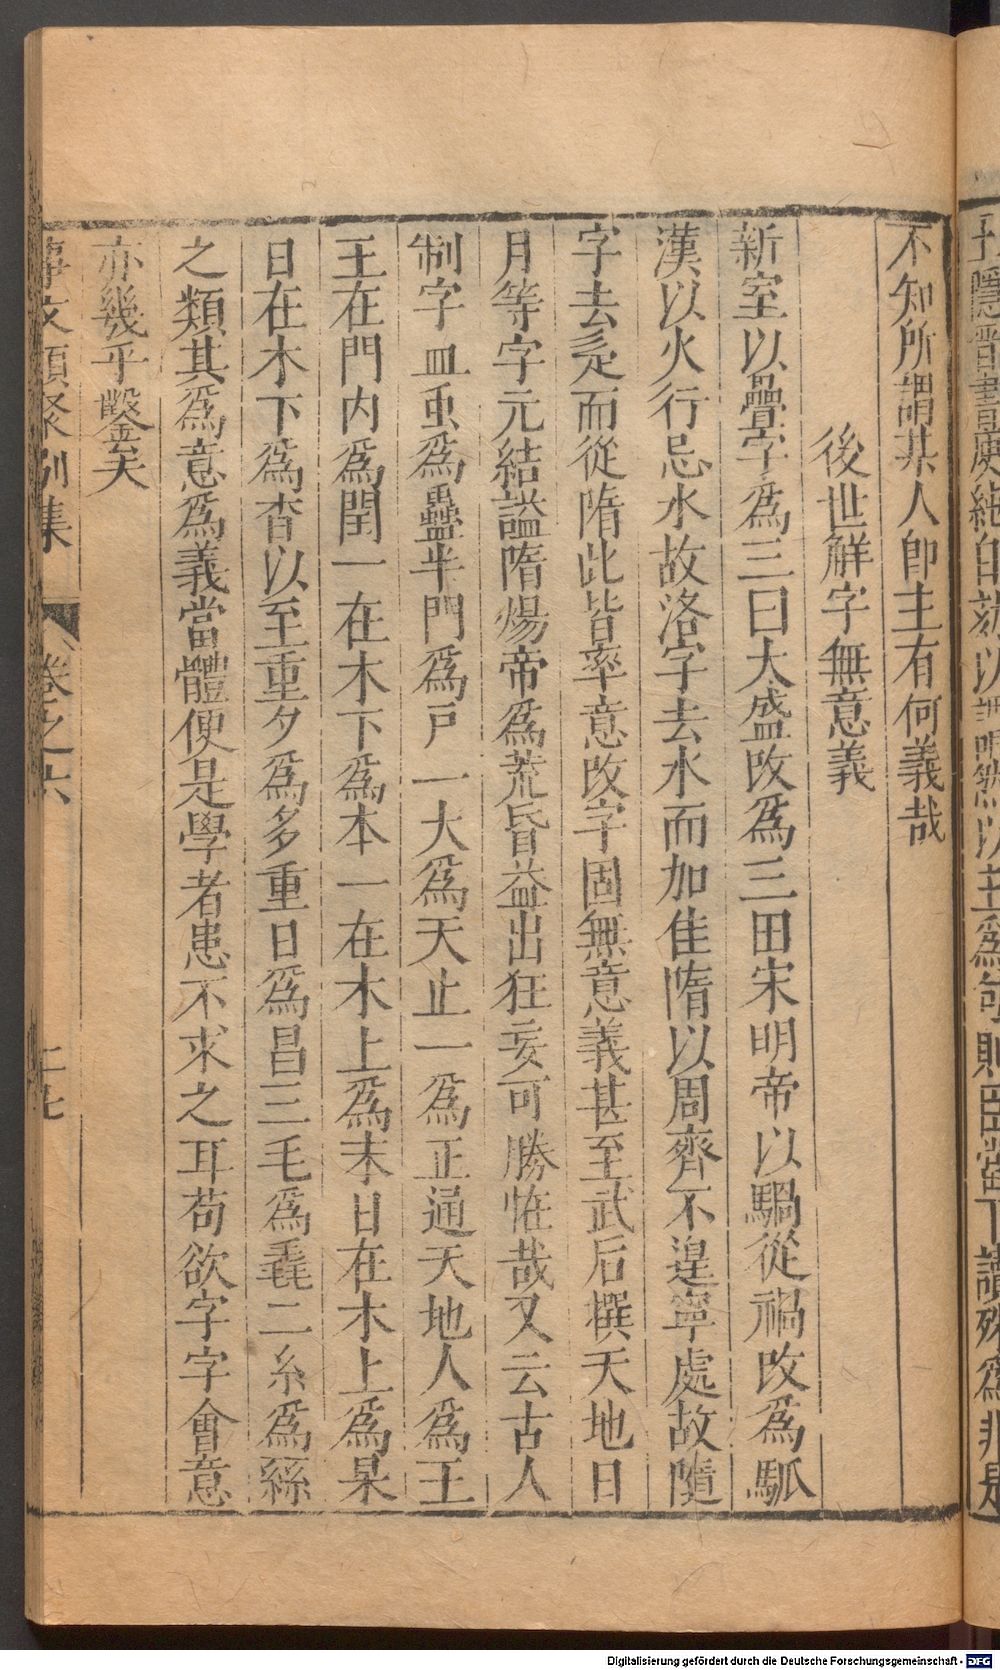 不知所謂某人卽主有何義哉
後世解字無意義
新室以疊字爲三日大盛改爲三田宋明帝以騧從禍改爲䯄
漢以火行忌水故洛字去水而加隹隋以周齊不遑寧處故隨
字去辵而從隋此皆率意改字固無意義甚至武后撰天地日
月等字元結謚隋煬帝爲荒昏益出狂妄可勝恠哉又云古人
制字皿䖝爲蠱半門爲戶一大爲天止一爲正通天地人爲王
王在門内爲閏一在木下爲本一在木上爲末日在木上爲杲
日在木下爲杳以至重夕爲多重日爲昌三毛爲毳二糸爲絲
之類其爲意爲義當體便是學者患不求之耳苟欲字字會意
亦幾乎鑿矣
事文類聚別集 卷之六 二十七
Digitalisierung gefördert durch die Deutsche Forschungsgemeinschaft - DFG